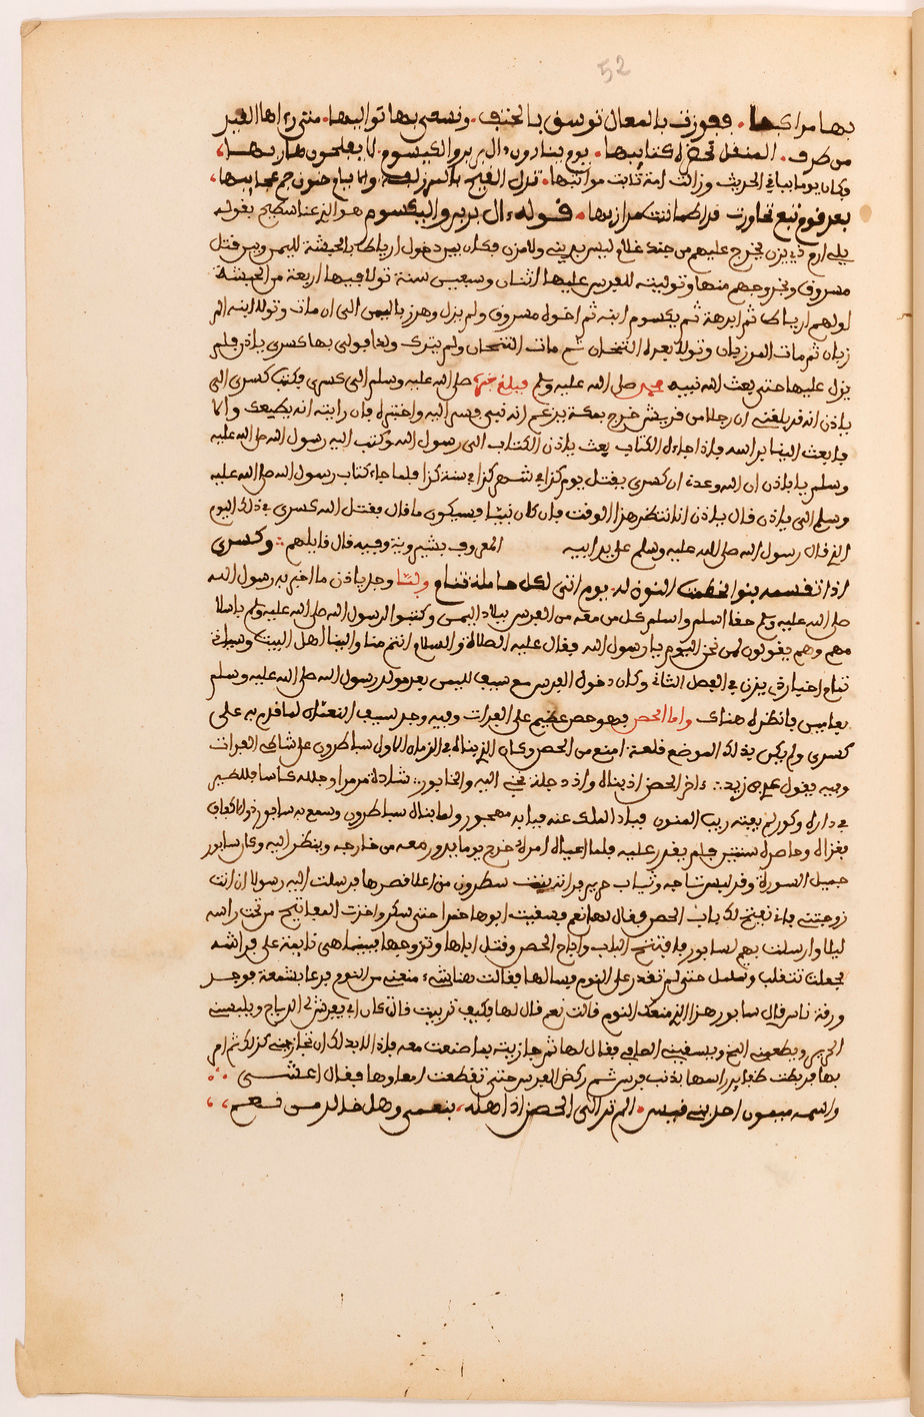 52
بها مراكبها. ففوزت بالبغال توسق بالحتف. وتسعى بها توالبها. متى رءاها القيل
من طرف. المنقل مخضرة كتايبها. يوم ينادون ءال بربر واليكسوم لا يفلحن هاربها
وكان يوما باقي الحديث وزالت امة ثابت مراتبها. بدل الفيج بالزرافة والايام خون جم عجايبها،
بعد قوم تبع نخاورت قد اطمانت مرازبها. قوله ءال بربر واليكسوم هو الذي عنا سطيح بقوله
يليه ارم ذي يزن يخرج عليهم من عدن فلا يترك منهم احدا باليمن وكان بين دخول ارياط بالحبشة لليمن وبين قتل
مسروق وخروجهم منها وتوليته للفرس عليها اثنان وسبعين سنة تولا فيها اربعة من الحبشة
اولهم ارياط ثم ابرهة ثم يكسوم ابنه ثم اخوه مسروق ولم يزل وهرز باليمن الى ان مات وتولا ابنه المر
زبان ثم مات المرزبان وتولا بعده التنجان ثم مات التنجان ولم يترك ولدا فولى بها كسرى باذن فلم
يزل عليها حتى بعث الله نبيه محمد صلى الله عليه وسلم صلى الله عليه وسلم الى كسرى فكتب كسرى الى
باذن انه قد بلغني ان رجلا من قريش خرج بمكة يزعم انه نبي فسر اليه واختبره فان رايته انه يطيعك والا
فابعث الينا براسه فلذا جاءه الكتاب بعث باذن الكتاب الى رسول الله وكتب اليه رسول الله صلى الله عليه
وسلم يا باذن ان الله وعدني ان كسرى يقتل يوم كذا في شهر كذا في سنة كذا فلما جاء كتاب رسول الله صلى الله عليه
وسلم الى باذن قال باذن انا ننتظر هذا الوقت فان كان نبيا فسيكون ما قال فقتل الله كسرى في ذلك اليوم
الذي قال رسول الله صلى الله عليه وسلم على يد ابنيه المعروف بشيرويه وفيه قال قايلهم وكسرى
اذ تقسمه بنوا فطمت المنون له. يوم انى لكل حاملة تمام ولما وجد باذن ما اخبر به رسول الله
صلى الله عليه وسلم حقا اسلم واسلم كل من معه من الفرس ببلاد اليمن وكتبوا الرسول الله صلى الله عليه وسلم باسلا
مهم وهم يقولون لمن نحن اليوم يا رسول الله فقال عليه الصلاة والسلام انتم منا والينا اهل البيت وسياتي
تمام اخبار ذي يزن في الفصل الثاني وكان دخول الفرس مع سيف لليمن بعد مولد رسول الله صلى الله عليه وسلم
بعامين فانظره هناك واما الحضر فهو حصن عظيم على الفرات وفيه وجد سيف النعمان لما قدم به على
كسرى ولم يكن بذلك الموضع قلعة امنع من الحضر وكان الذي بناه في الزمان الاول ساطرون على شاطئ الفرات
وفيه يقول عدي بن زيد. واخو الحضر اذ بناه واذ دجلة تجبى اليه والخابور. شاده مرمرا وجلله كلسا فللطير
في ذراه وكور لم يهبه ريب المنون فباد الملك عنه فبابه مهجور ولما بناه ساطرون وسمع به سابور ذو الاكتاف
فغزاه وحاصره سنتين فلم يقدر عليه فلما اعياه امره خرج يوما يدور معه من خارجه وينظر اليه وكان سابور
جميل الصورة وقد لبس تاجه وثياب حرير فراته بنت سطرون من اعلا قصرها فارسلت اليه رسولا ان انت
زوجتني فانا نفتح لك باب الحصن فقال لها نعم فسقيت ابوها خمرا حتى سكر واخذت المفاتيح من تحت راسه
ليلا وارسلت بهم لسابور فافتتح الباب واباح الحصن وقتل اباها وتزوجها فبينما هي نايمة على فراشه
فجعلت تتقلب وتململ حتى لم تقدر على النوم فسالها فقالت هنا شيء منعني من النوم فدعا بشمعة فوجد
ورقة ناس قال سابور هذا الذي منعك النوم قالت نعم قال لها وكيف تربيت قالت كان ابي يفرش لي الديباج ويلبسني
الحرير ويطعمني المخ ويسقيني الصافي فقال لها شر جازيته بما صنعت معه فلذا لابد لك ان تجازيني كذلك ثم امر
بها فربطت ظفاير راسها بذنب فرس ثم ركض الفرس حتى تقطعت امعاوها فقال اعشى
واسمه ميمون احد بني قيس. الم تر الى الحضر اذ اهله، بنعمى وهل خالد من نعم